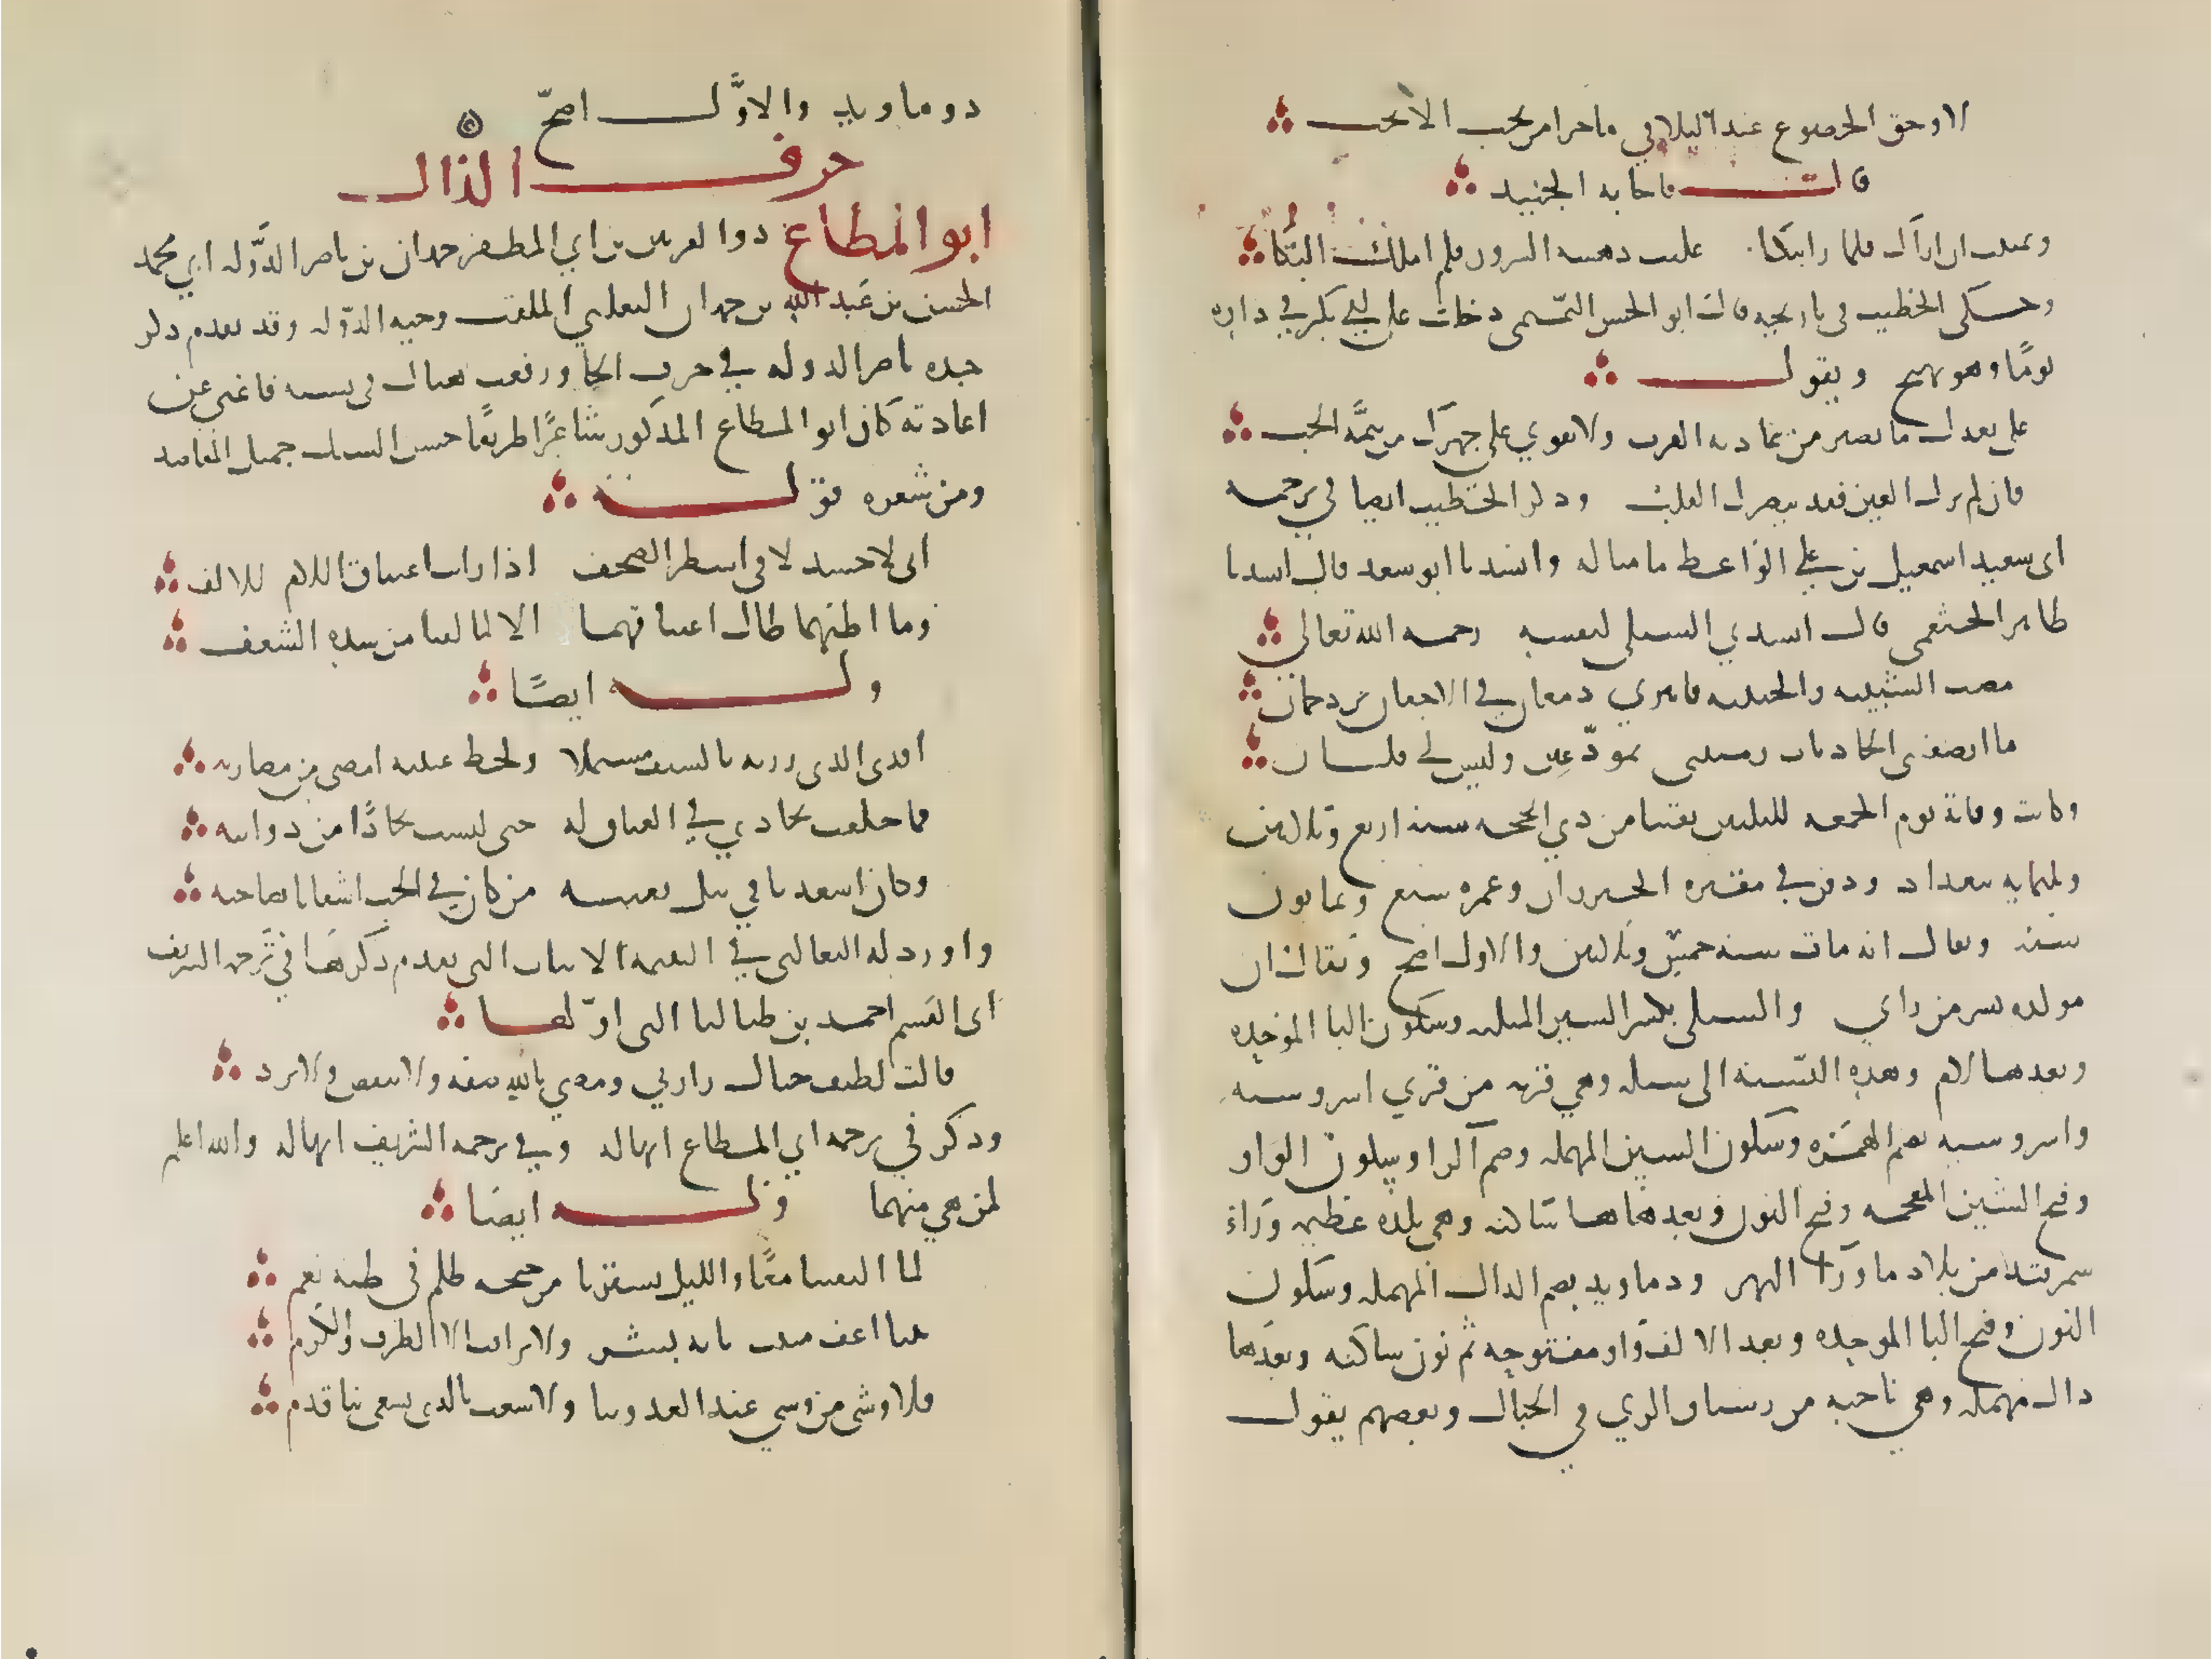 لا وحق الخضوع عند التلاقي ما جزا من يحب الا يحب
قال فاجابه الجنيد
وتمنيت ان اراك فلما رايتكا غلبت دهشة السرور فلم املك البكا
وحكى الخطيب في تاريخه قال ابو الحسن التميمي دخلت على ابي بكر في داره
يومًا وهو يهيج ويقول
على بعدك ما يصبر من عادته القرب ولا يقوي على هجرك من تيمه الحب
فان لم ترك العين فقد يبصرك القلب وذكر الخطيب ايضا في ترجمة
ابي سعيد اسمعيل بن علي الواعظ ما مثاله وانشدنا ابو سعد قال انشدنا
طاهر الخثعمي قال انشدني الشبلي لنفسه رحمه الله تعالى
مضت الشبيبة والحبيبة فانبري دمعان في الاجفان يزدحمان
ما انصفتني الحادثات رمينني بمودعين وليس لي قلبان
وكانت وفاته يوم الجمعه لليلتين بقيتا من ذي الحجه سنة اربع وثلاثين
وثلثمايه ببغداد ودفن في مقبرة الخيزران وعمره سبع وثمانون
سنة ويقال انه مات سنة خمس وثلاثين والاول اصح ويقال ان
مولده بسر من راي والشبلي بكسر الشين المثلثه وسكون البا الموحده
وبعدها لام وهذه النسبة الى شبله وهي قريه من قري اسروشنه
واسروشنه بضم الهمزه وسكون السين المهمله وضم الرا وسكون الواو
وفتح الشين المعجمه وفتح النون وبعدها ها ساكنه وهي بلدة عظيمه وراء
سمرقند من بلاد ما ورا النهر ودنباوند بضم الدال المهمله وسكون
النون وفتح البا الموحده وبعد الالف واو مفتوحه ثم نون ساكنه وبعدها
دال مهمله وهي ناحيه من رستاق الري في الجبال وبعضهم يقول
دوماوند والاوَّل اصحّ
حرف الذال
ابو المطاع ذو القرنين بن ابي المظفر حمدان بن ناصر الدَّوله ابي محمد
الحسن بن عبد الله بن حمدان التغلبي الملقب وجيه الدوله وقد تقدم ذكر
جده ناصر الدوله في حرف الحا ورفعت هناك في نسبه فاغنى عن
اعادته كان ابو المطاع المذكور شاعرًا ظريفًا حسن السبك جميل المقاصد
ومن شعره قوله
اني لاحسد لا في اسطر الصحف اذا رايت اعتناق اللام للالف
وما اظنهما طال اعتناقهما الا لما لقيا من شدة الشغف
وله ايضًا
افدي الذي زرته بالسيف مشتملا ولحظ عينيه امضى من مضاربه
فما خلعت نجادي في العناق له حتى لبست نجادًا من ذوائبه
وكان اسعدنا في نيل بغيته من كان في الحب اشقانا بصاحبه
واورد له الثعالبي في اليتيمه الابيات التي تقدم ذكرها في ترجمة الشريف
ابي القسم احمد بن طباطبا التي اوّلها
قالت لطيف خيال زارني ومضي بالله صفه ولا تنقص ولا تزد
وذكر في ترجمه ابي المطاع انها له وفي ترجمه الشريف انها له والله اعلم
لمن هي منهما وله ايضا
لما التقينا معًا والليل يسترنا من جنحه ظلم في طيها نعم
بتنا اعف مبيت باته بشر ولا مراقب الا الطرف والكرم
فلا وشى من وشى عند العدو بنا ولا سعت بالذي يسعى بنا قدم